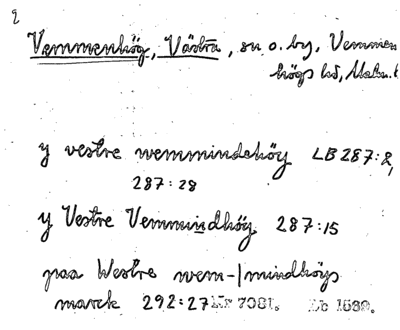 Vemmenhög, Västra, sn o. by, Vemmen
högs hd, Malm. l
y vestre wemmindehöy LB 287:8,
287:28
y Vestre Vemmindhöy 287:15
paa Westre wem-|mindhöys
marck 292:27 Nr 7081. Lb 1682.